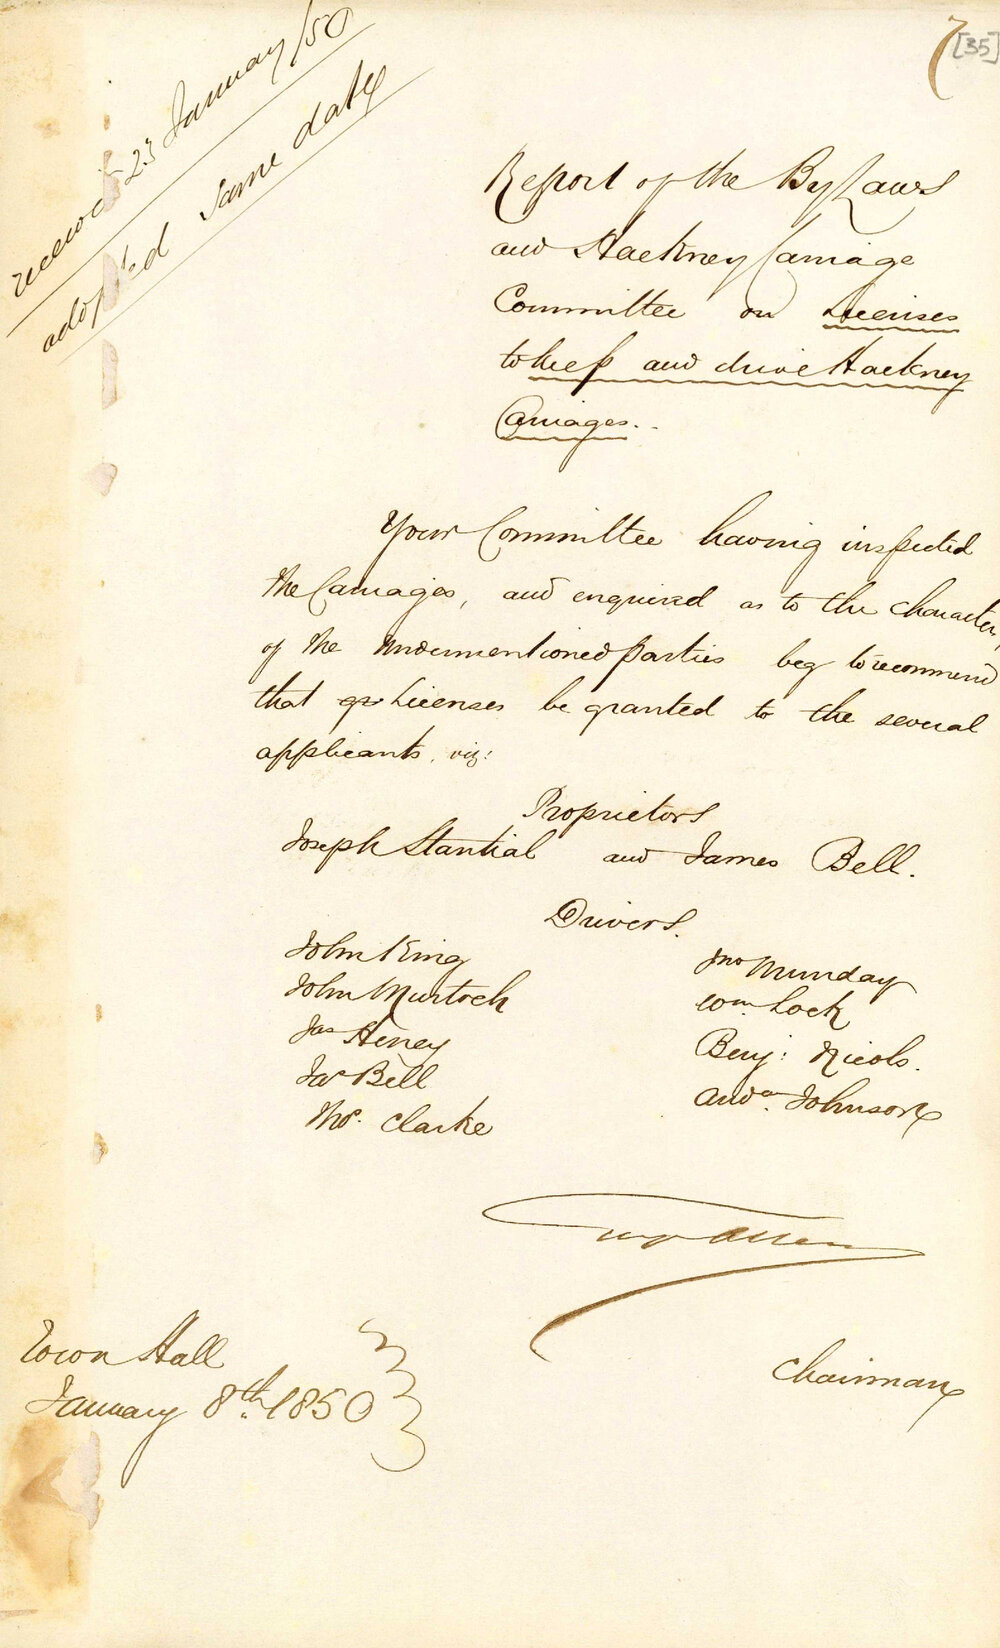 7 [35]
received 23 January /50
adopted same date
Report of the By Laws
and Hackney Carriage
Committee on Licenses
to keep and drive Hackney
Carriages.
Your Committee having inspected
the Carriages, and enquired as to the character,
of the Undermentioned parties beg to recommend
that Licenses be granted to the several
applicants, viz:
Proprietors
Joseph Stantial and James Bell.
Drivers.
John King
John Murtoch
Jas Heney
Jas Bell
Thos. Clarke
Jno Munday
Wm. Lock
Benj: Nicols.
Andw. Johnson
Allen
Chairman
Town Hall
January 8th. 1850